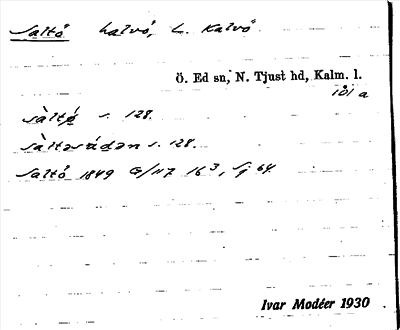 Saltö halvö, L. Kalvö
Ö. Ed sn, N. Tjust hd, Kalm. l.
101 a
sàltø s. 128.
sàltəsúdən s. 128.
Saltö 1849 G/117 16³, Sj 64.
Ivar Modéer 1930